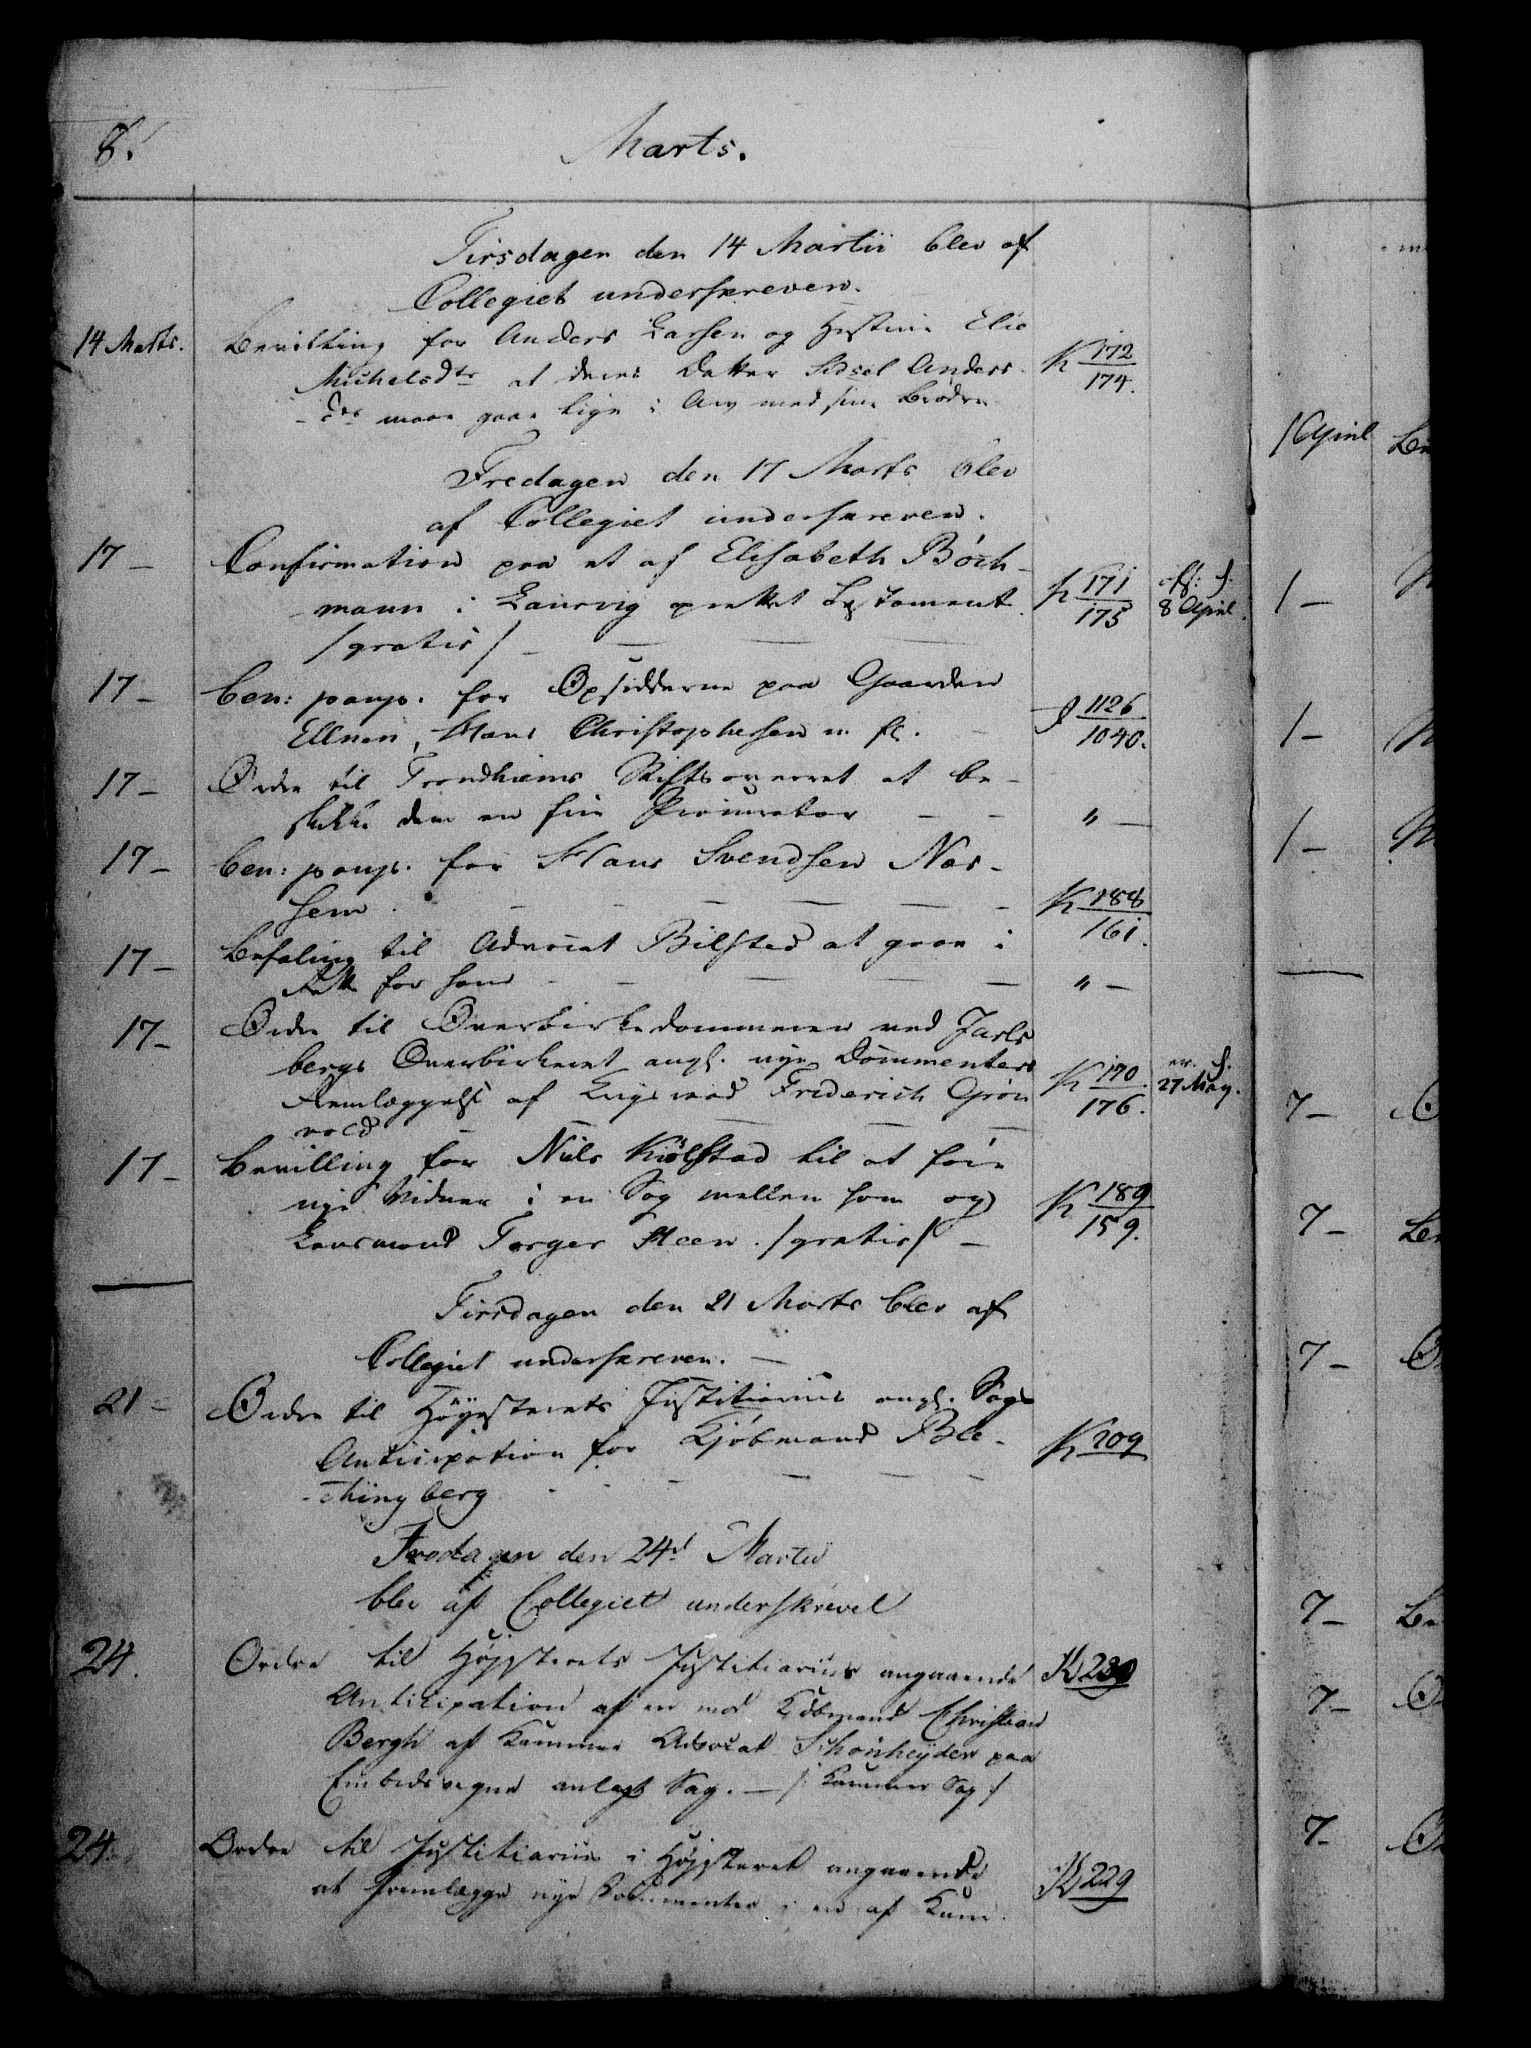 8.
Marts.
Tirsdagen den 14 Martii blev af
Collegiet underskreven.
14 Marts. Bevilling for Anders Larsen og Hustrue Elie
Michelsdtr at deres Datter Sidsel Anders- K 172/174.
-dtr maae gaae lige i Arv med sine Brødre
Fredagen den 17 Marts blev
af Collegiet underskreven.
17 – Confirmation paa et af Elisabeth Böch-
mann i Laurvig oprettet Testament K 171/175 8 April.
/gratis/ –
17 – ben: paup. for Opsidderne paa Gaarden
Ellnen, Hans Christophersen m. fl. 1126/1040.
17 – Ordre til Trondhiems Stiftsoverret at be-
skikke dem en frie Procurator – – " –
17 – ben: paup. for Hans Svendsen Næs-
sem. K 188/161.
17 – Befaling til Advocat Bilsted at gaae i
Rette for ham – " –
17 – Ordre til Overbirkedommeren ved Jarls
bergs Overbirkeret angl. nye Documenters K 170/176. 27 May.
Fremlæggelse af Friderich Grön
vold
17 – Bevilling for Niels Kiölstad til at føre
nye Vidner i en Sag mellem ham og K 189/159.
Lensmand Torger Steen. /gratis/ –
Tirsdagen den 21 Marts blev af
Collegiet underskreven. –
21 – Ordre til Høyesterets Justitiarius angl. Sags
Anticipation for Kjöbmand Ble- K 209
-thingberg
Fredagen den 24d Martii
blev af Collegiet underskrevet
24. Ordre til Højesterets Justitiarius angaaende K 230
Anticipation af en mod Kiöbmand Christian
Bergh af Kammer Advocat Schönheyder paa
Embedsvegne anlagt Sag. – /: Kammer Sag :/
24. Ordre til Justitiarius i Højesteret angaaende
at fremlægge nye Documenter i en af Kam- K 229
1 April
1 –
1 –
1 –
7 –
7 –
7 –
7 –
7 –
7 –